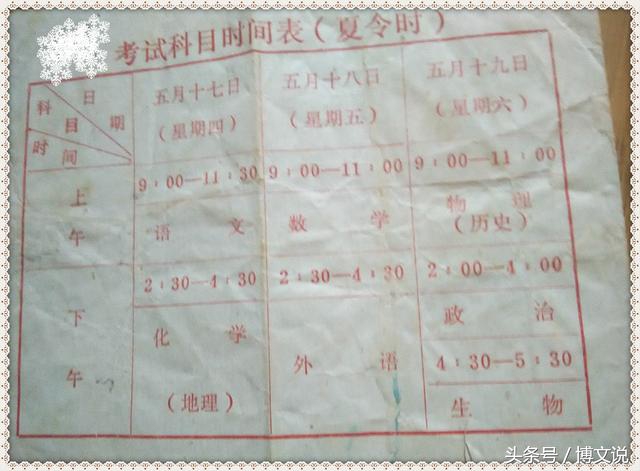 考试科目时间表(夏令时)
日期
科目
时间
五月十七日
(星期四)
五月十八日
(星期五)
五月十九日
(星期六)
上午
9:00—11:30
9:00—11:00
9:00—11:00
语文
数学
物理
(历史)
下午
2:30—4:30
2:30—4:30
2:00—4:00
化学
(地理)
外语
政治
4:30—5:30
生物
头条号/博文说